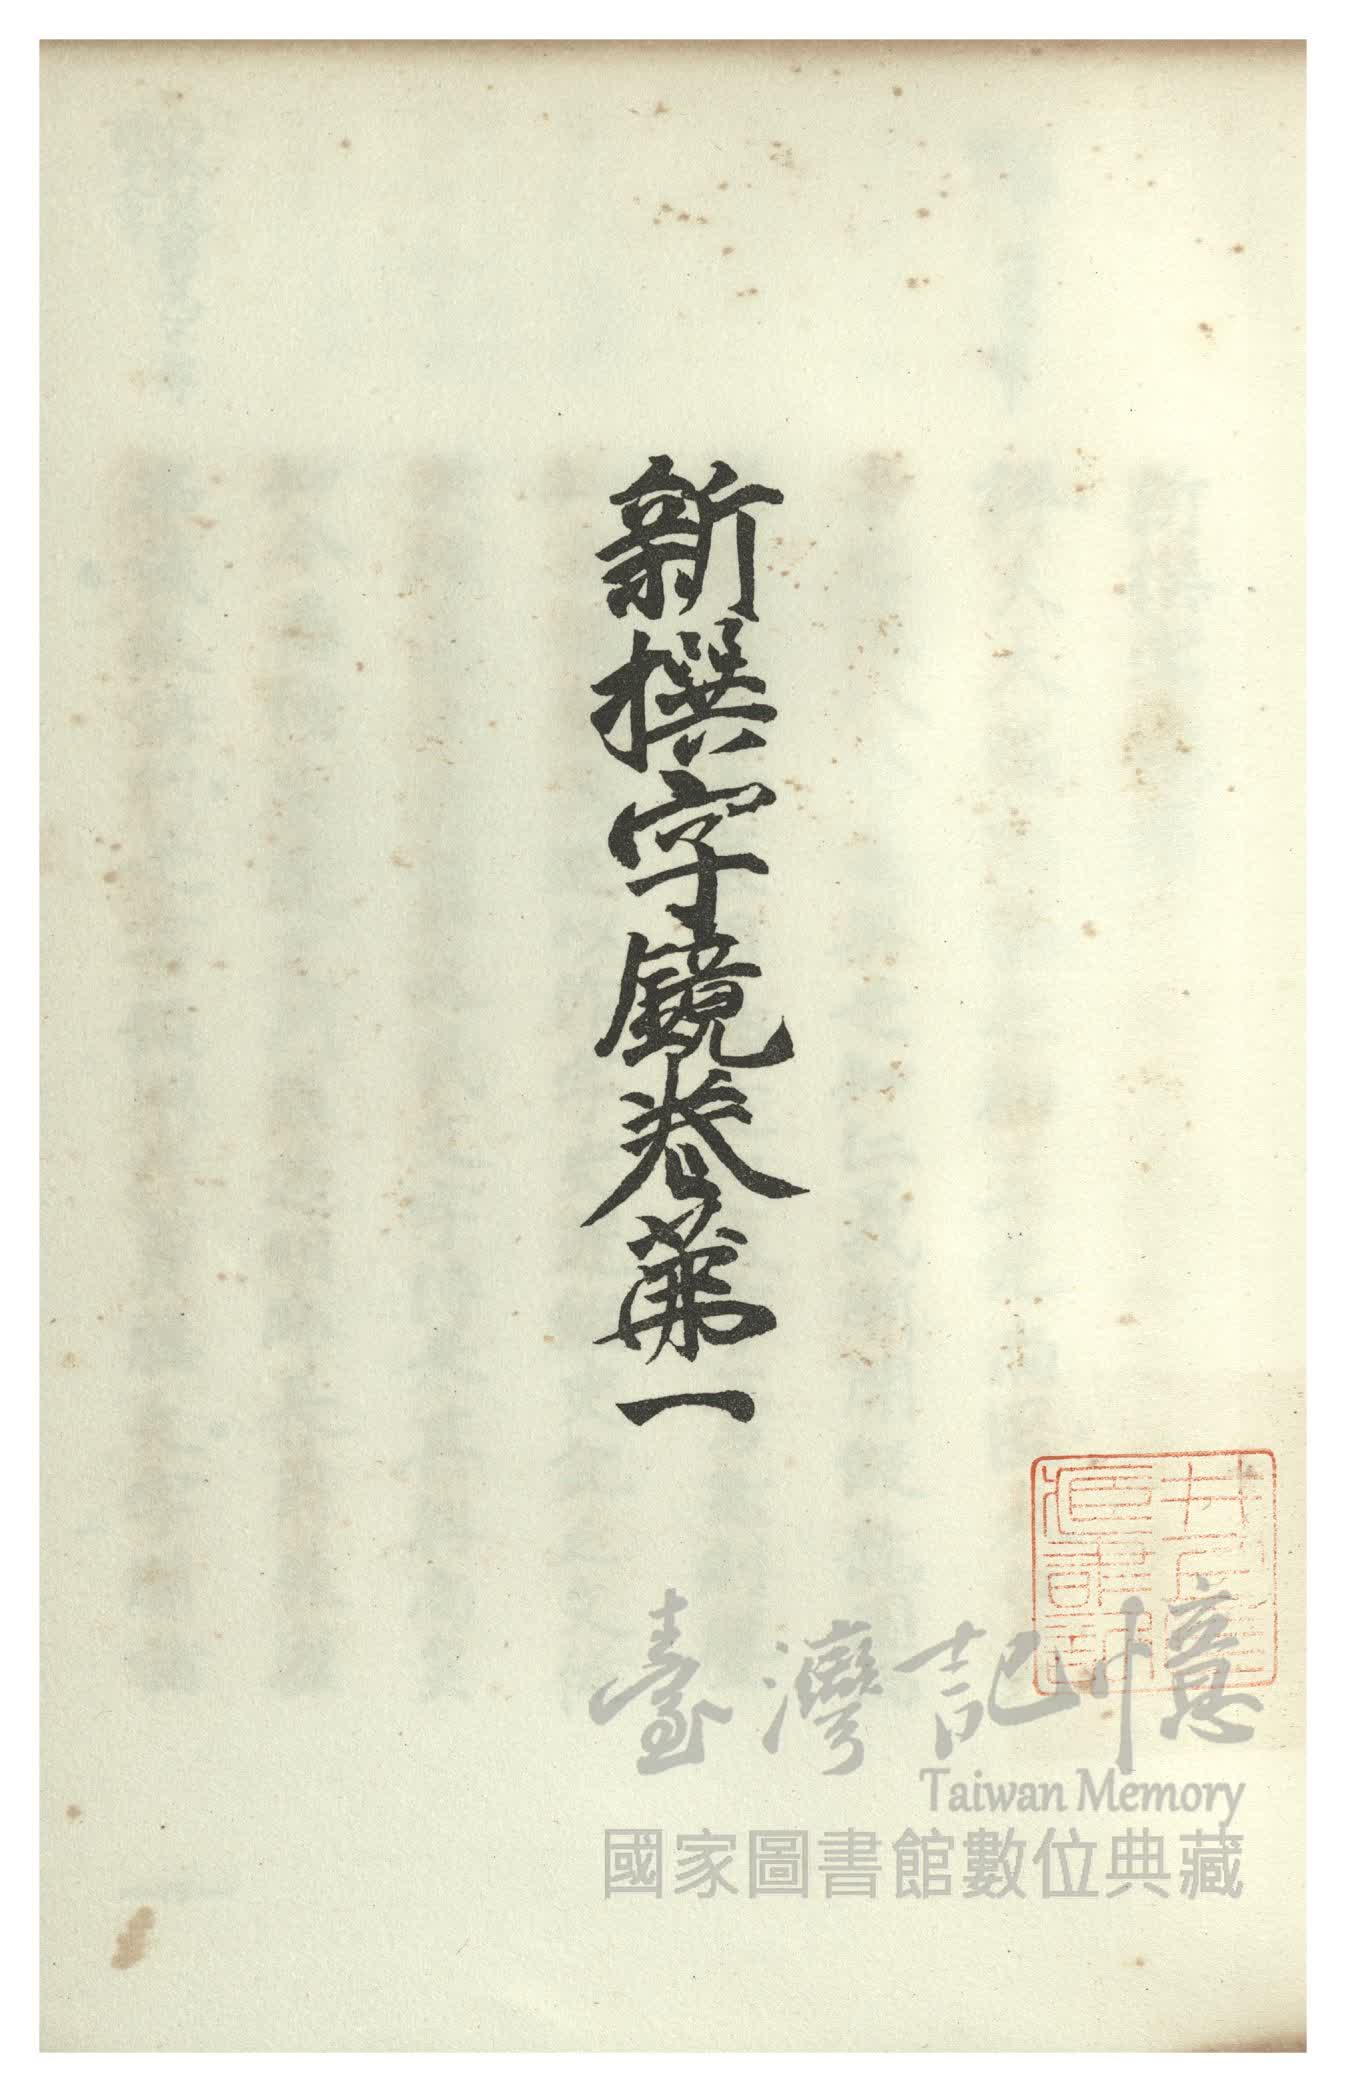 新撰字鏡卷第一
臺灣記憶
Taiwan Memory
國家圖書館數位典藏